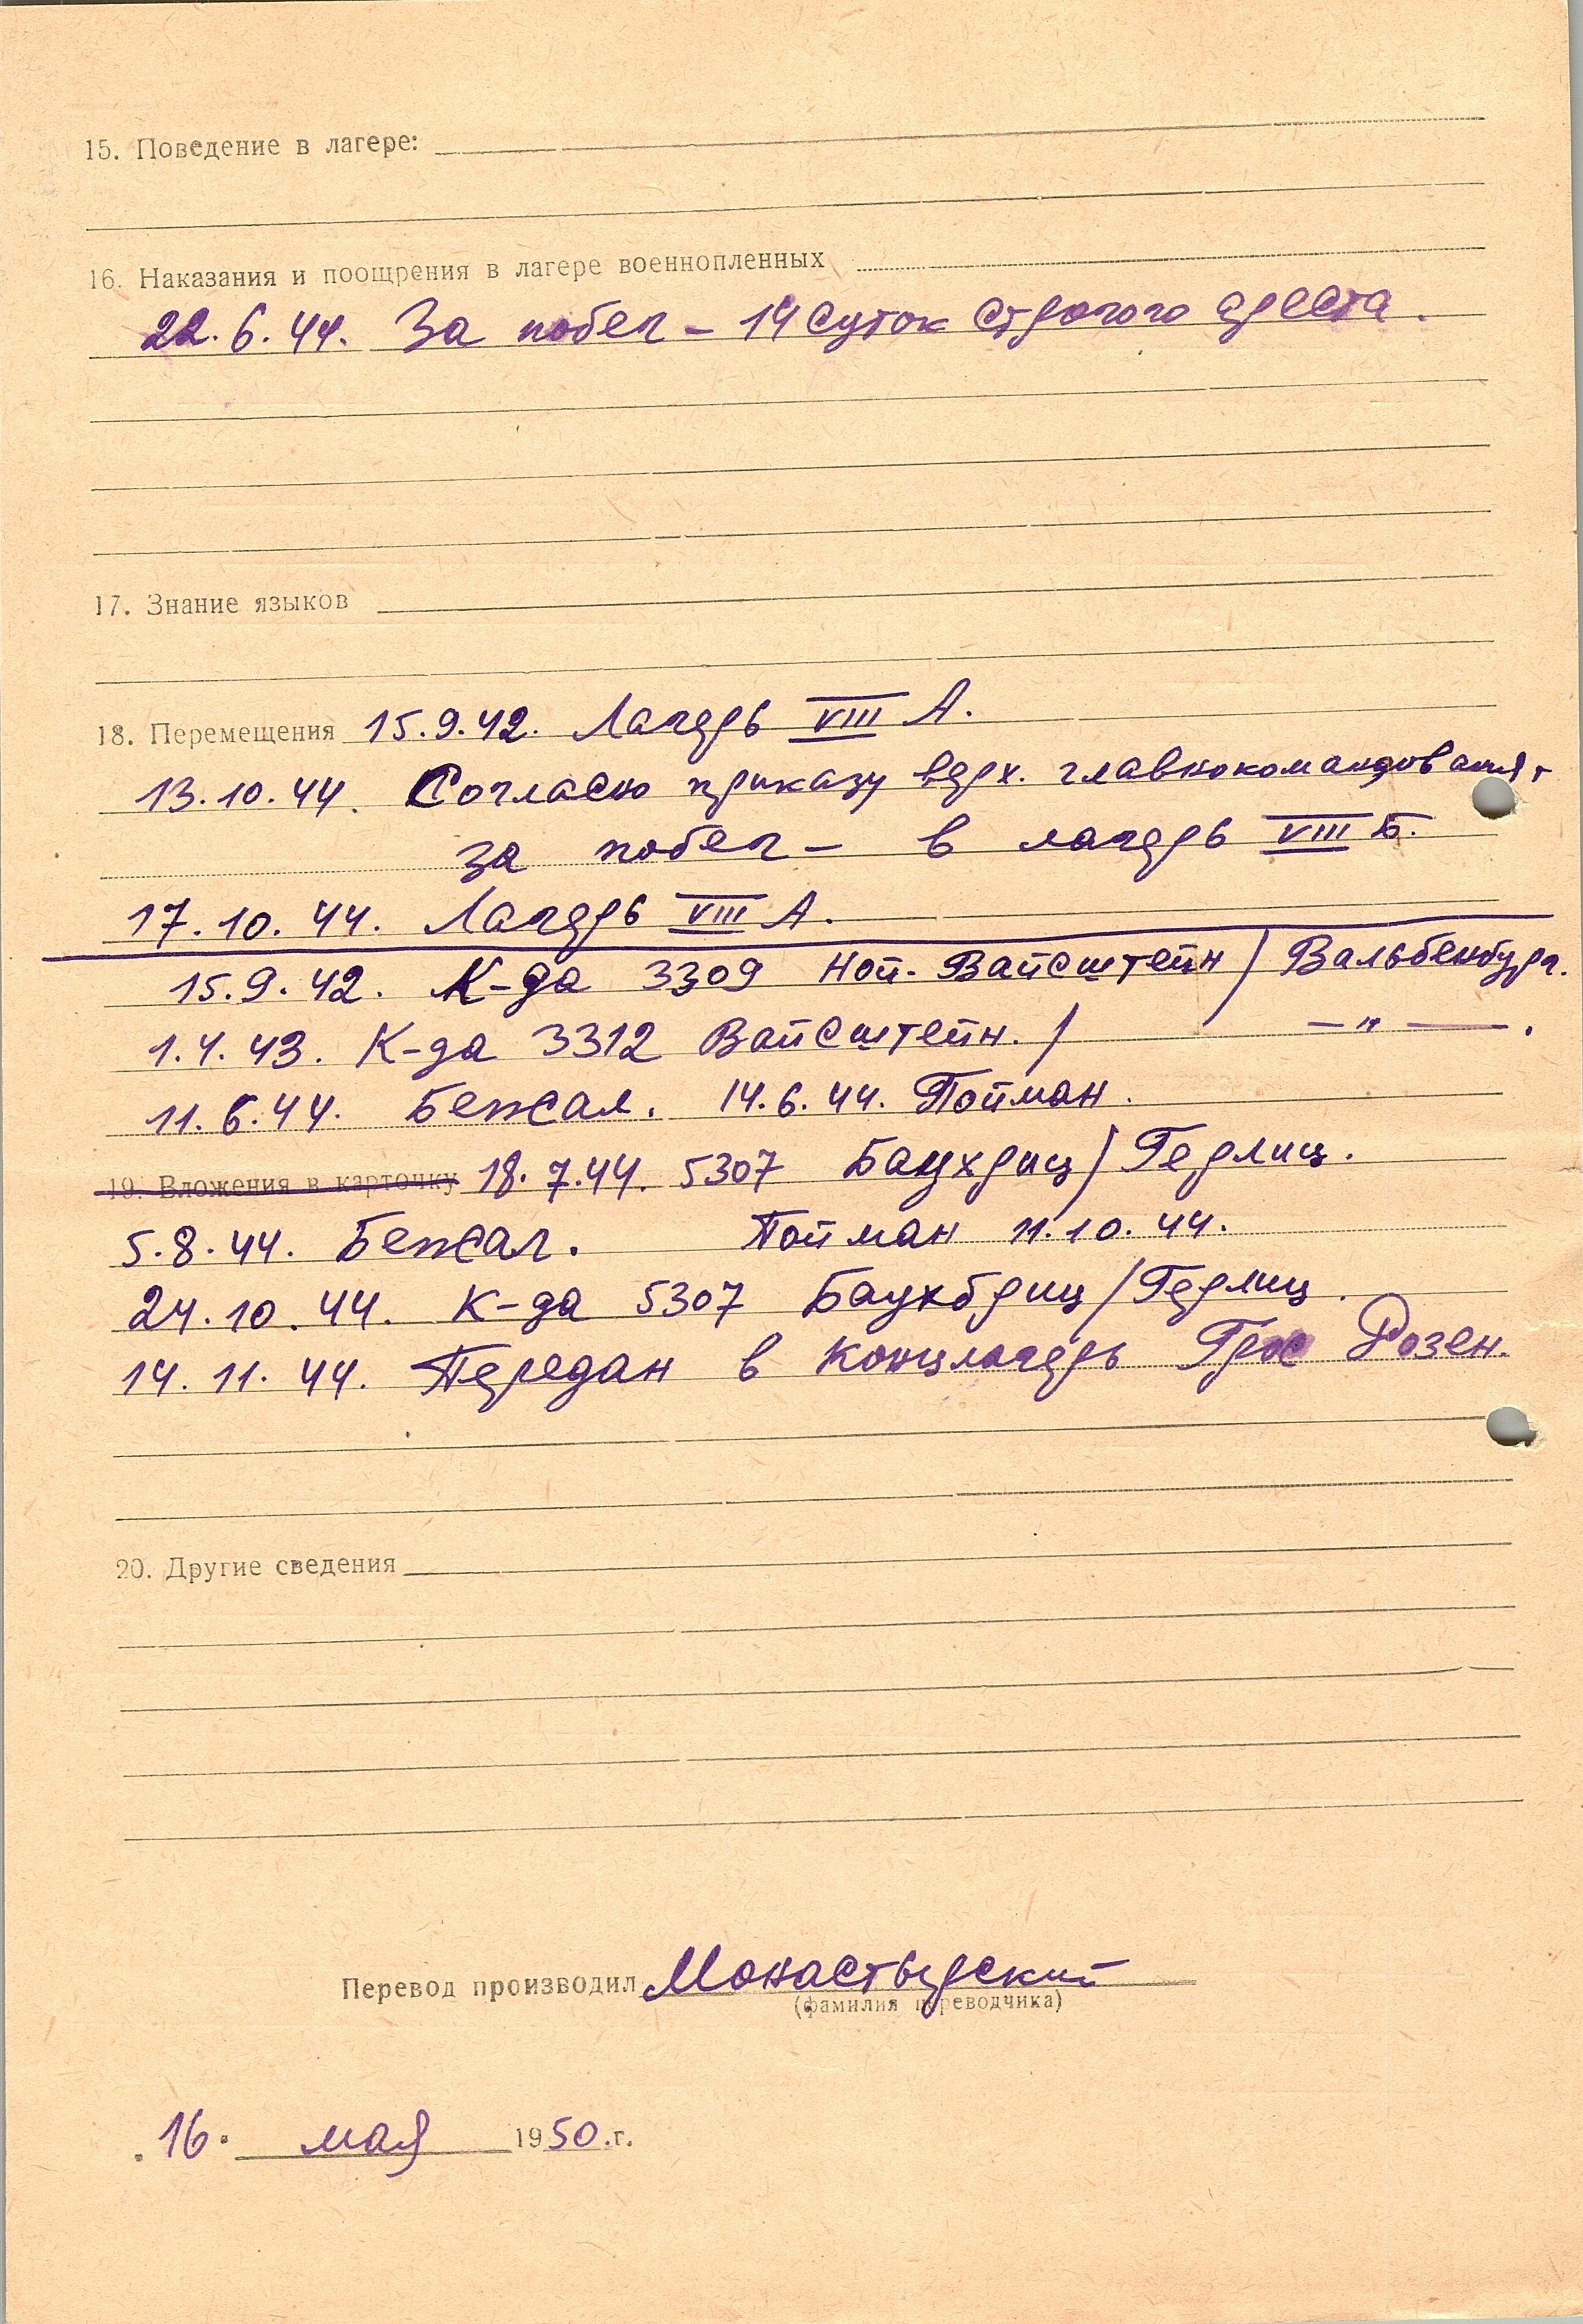 15. Поведение в лагере:
16. Наказания и поощрения в лагере военнопленных
22.6.44. За побег – 14 суток строгого ареста.
17. Знание языков
18. Перемещения 15.9.42. Лагерь VIII А.
13.10.44. Согласно приказу верх. главнокомандования,
за побег – в лагерь VIII Б.
17.10.44. Лагерь VIII А.
15.9.42. К-да 3309 Ной-Вайсштейн / Вальбенбург.
1.4.43. К-да 3312 Вайсштейн. / —"—.
11.6.44. Бежал. 14.6.44. Пойман.
19. Вложения в карточку 18.7.44. 5307 Баухриц / Герлиц.
5.8.44. Бежал. Пойман 11.10.44.
24.10.44. К-да 5307 Баукбриц / Герлиц.
14.11.44. Передан в концлагерь Грос Розен.
20. Другие сведения
Перевод производил Монастырский
(фамилия переводчика)
"16" мая 1950.г.